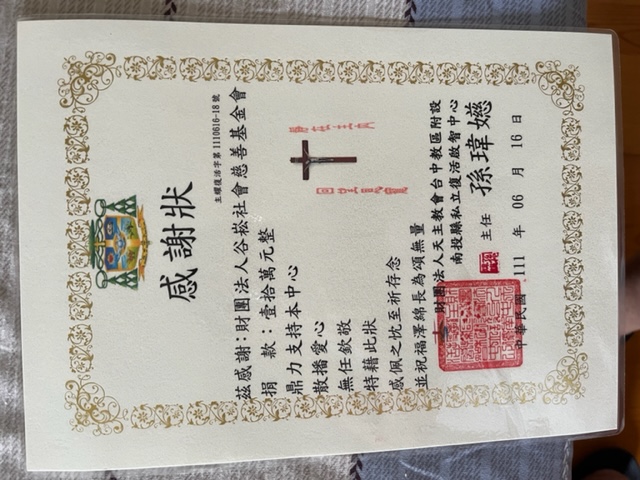 感謝狀
主曜復活字第 1110616-18 號
茲感謝：財團法人谷崧社會慈善基金會
捐　款：壹拾萬元整
鼎力支持本中心
散播愛心
無任欽敬
特藉此狀
感佩之忱至祈存念
並祝福澤綿長為頌無量
財團法人天主教會台中教區附設
南投縣私立復活啟智中心
主任 孫瑋
中華民國 111 年 06 月 16 日